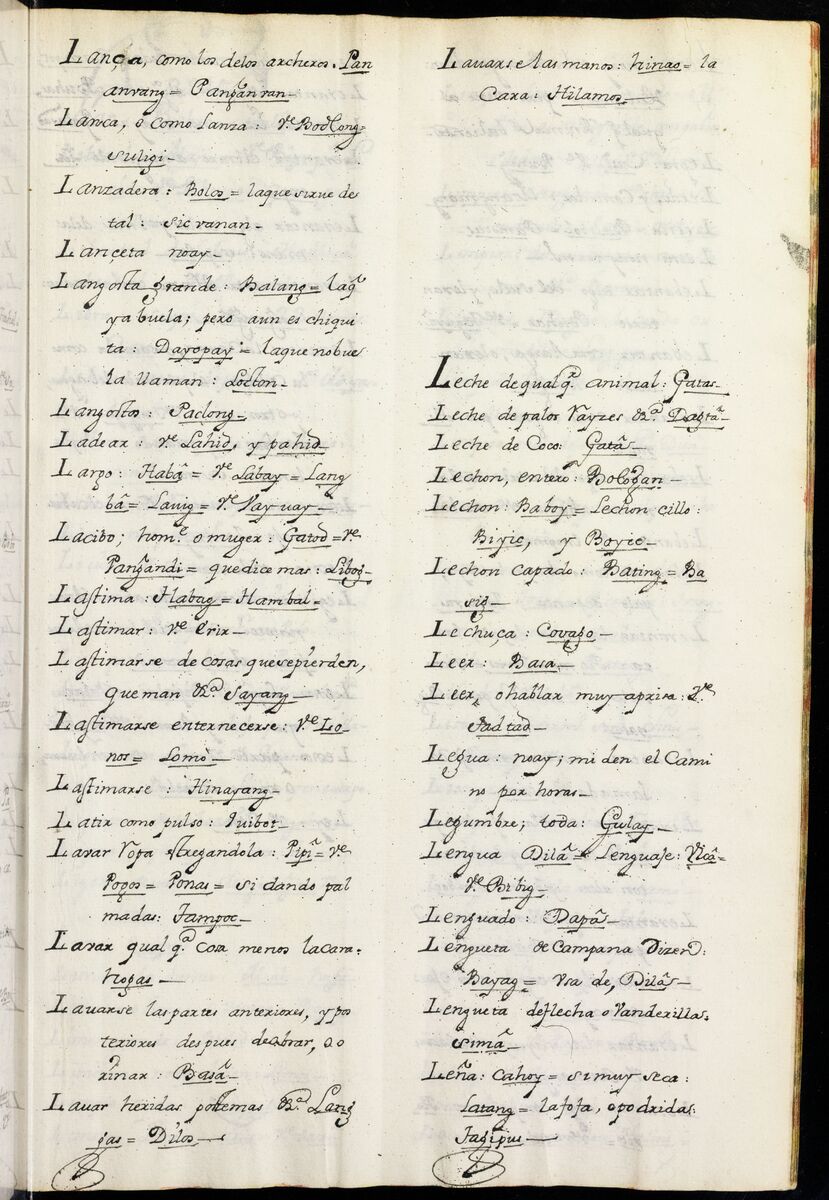 Lança, como los delos archeros. Pan
anvang = Pangan ran —
Lanca, o como Lanza: v.e Bod Long =
suligi —
Lanzadera: Bolos = laque sirue de
tal: sicvanan —
Lançeta noay —
Langosta grande: Balang = laq̃
ya buela; pero aun es chiqui
ta: Dayopay = laque no bue
la llaman: Locton —
Langostas: Paclong —
Ladear: v.e Lahid, y pahid
Largo: Habâ = v.e Labay = Lang
bâ = Lauig = v.e Vay uay —
Lacibo; hom.e o muger: Gatod = v.e
Pangandi = que dice mas: Libog —
Lastima: Habag = Hambal =
Lastimar: v.e Crix —
Lastimarse de cosas que se pierden,
queman &.a Sayang —
Lastimarse enternecerse: v.e Lo
nos = Lomò —
Lastimarse: Hinayang —
Latir como pulso: Tuibot —
Lavar Ropa stregandola: Pipî = v.e
Pogos = Ponas = si dando pal
madas: Tampoc —
Lavar qual q.a cosa menos la cara =
hogas —
Lauarse las partes anteriores, y pos
teriores despues de obrar, o o
rinar: Basâ —
Lauar heridas postemas &.a Lang
gas = Dilos —
Lauarse las manos: hinao = la
Cara: Hilamos —
Leche de qualq.r animal: Gatas —
Leche de palos Rayzes &.a Dagtâ —
Leche de Coco: Gatâs —
Lechon, entero: Bologan —
Lechon: Baboy = Lechon cillo:
Biyic, y Boyic —
Lechon capado: Bating = Ba
sig —
Lechuça: Covago —
Leer: Basa —
Leer, o hablar muy aprisa: v.e
Sadtad —
Legua: noay; miden el Cami
no por horas —
Legumbre; toda: Gulay —
Lengua Dilâ = Lenguaje: Vicâ =
v.e Bibig —
Lenguado: Dapâ —
Lengueta de Campana Dizen:
Bayag = vsa de, Dilâ —
Lengueta de flecha o Vanderillas.
simâ —
Leña: cahoy = si muy seca:
Latang = la fofa, o podridas:
Tagipus —